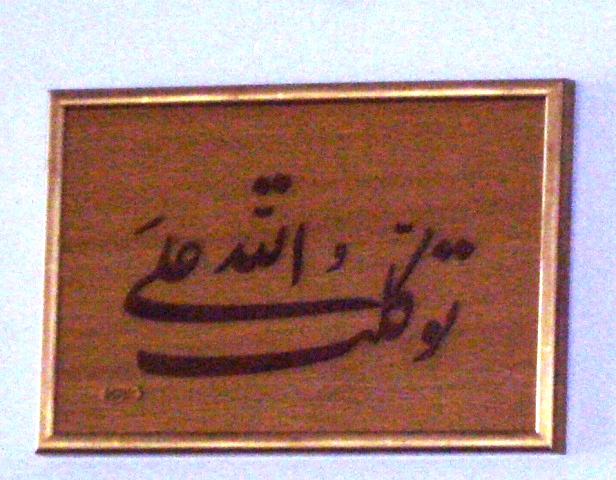 توکلتُ علی الله